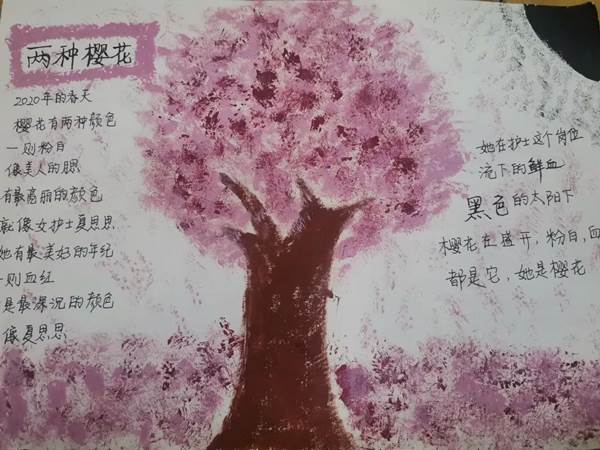 两种樱花
2020年的春天
樱花有两种颜色
一则粉白
像美人的腮
有最高丽的颜色
就像女护士夏思思
她有最美好的年纪
一则血红
是最深沉的颜色
像夏思思
她在护士这个岗位
流下的鲜血
黑色的太阳下
樱花在盛开，粉白，血
都是它，她是樱花